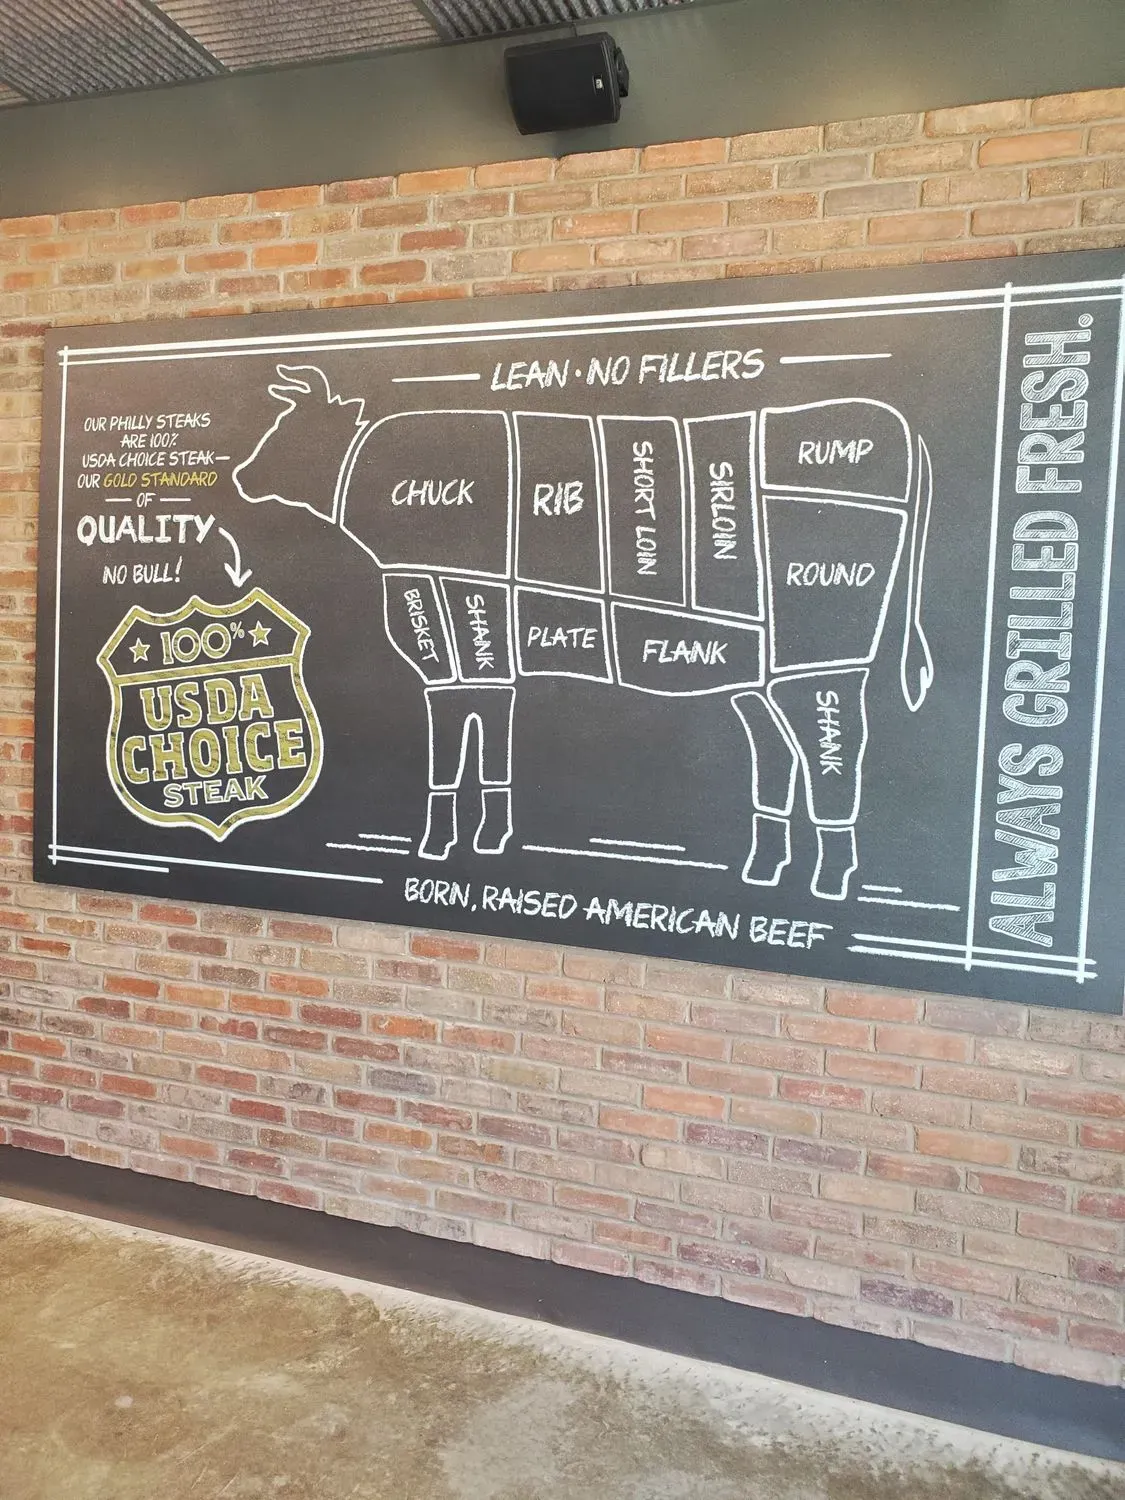 LEAN · NO FILLERS
OUR PHILLY STEAKS
ARE 100%
USDA CHOICE STEAK—
OUR GOLD STANDARD
— OF —
QUALITY
NO BULL!
★ 100% ★
USDA
CHOICE
STEAK
CHUCK
RIB
SHORT LOIN
SIRLOIN
RUMP
ROUND
BRISKET
SHANK
PLATE
FLANK
SHANK
BORN, RAISED AMERICAN BEEF
ALWAYS GRILLED FRESH.